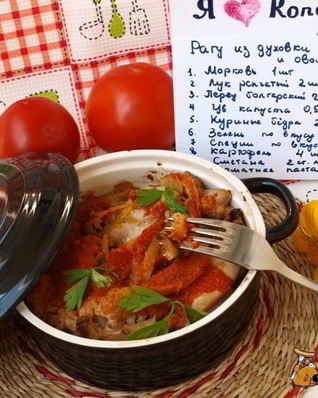 Я
Рагу из духовки
и овощ
1. Морковь 1 шт
2. Лук репчатый 2 шт
3. Перец болгарский 2
4. Цв капуста 0,5
5. Куриные бёдра 2
6. Зелень по вкусу
7. Специи по вкусу
8. Картофель 4 ш
Сметана 2 ст.л
паста